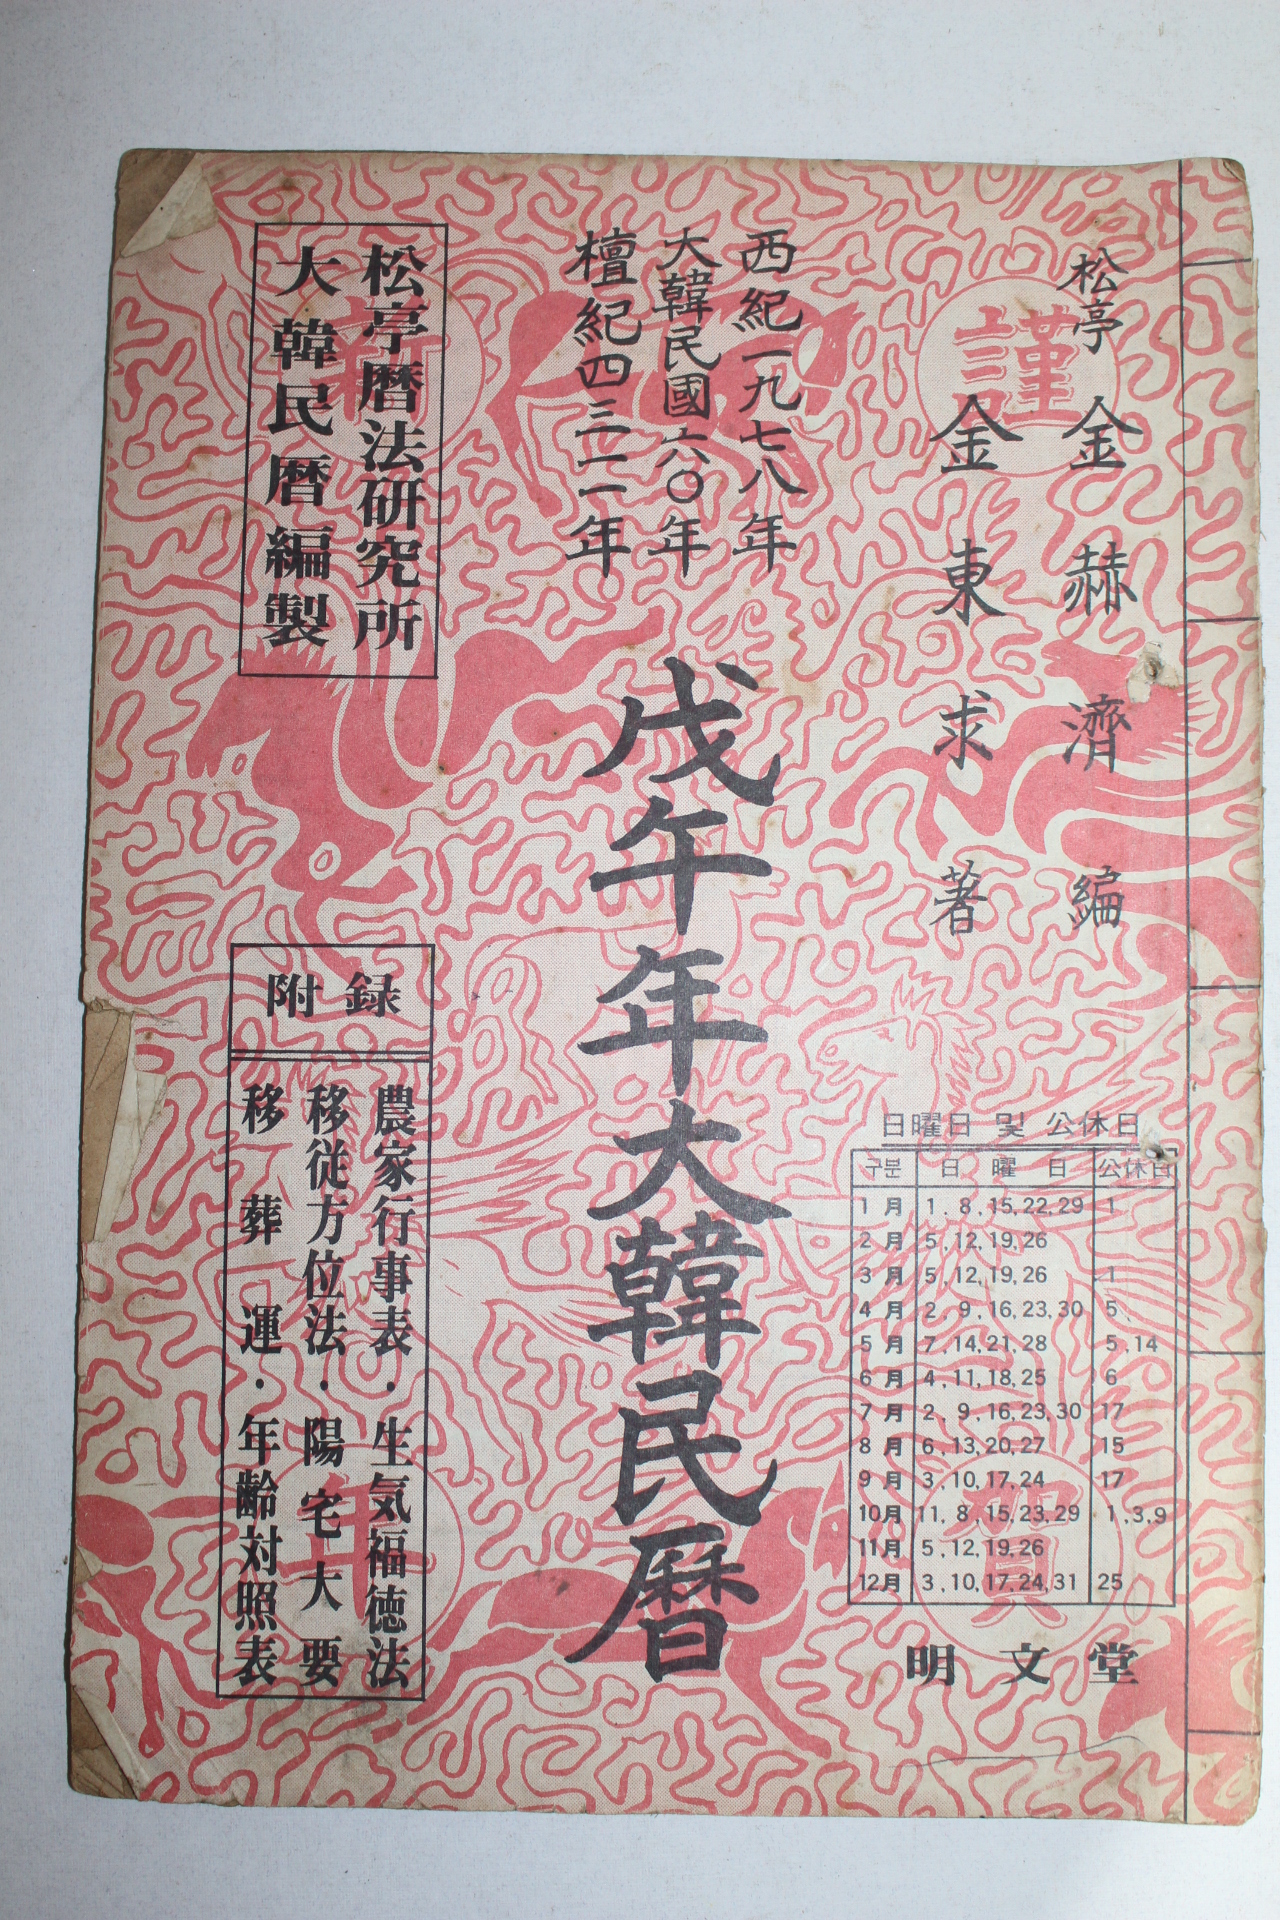 松亭 金赫濟 編
金東求 著
西紀一九七八年
大韓民國六〇年
檀紀四三一一年
戊午年大韓民暦
松亭暦法研究所
大韓民暦編製
謹
賀
新
年
附録
農家行事表・生気福徳法
移従方位法・陽宅大要
移葬運・年齢対照表
日曜日 및 公休日
구분 日曜日 公休日
1月 1.8,15,22,29 1
2月 5,12,19,26
3月 5,12,19,26 1
4月 2,9,16,23,30 5
5月 7,14,21,28 5,14
6月 4,11,18,25 6
7月 2,9,16,23,30 17
8月 6,13,20,27 15
9月 3,10,17,24 17
10月 11,8,15,23,29 1,3,9
11月 5,12,19,26
12月 3,10,17,24,31 25
明文堂